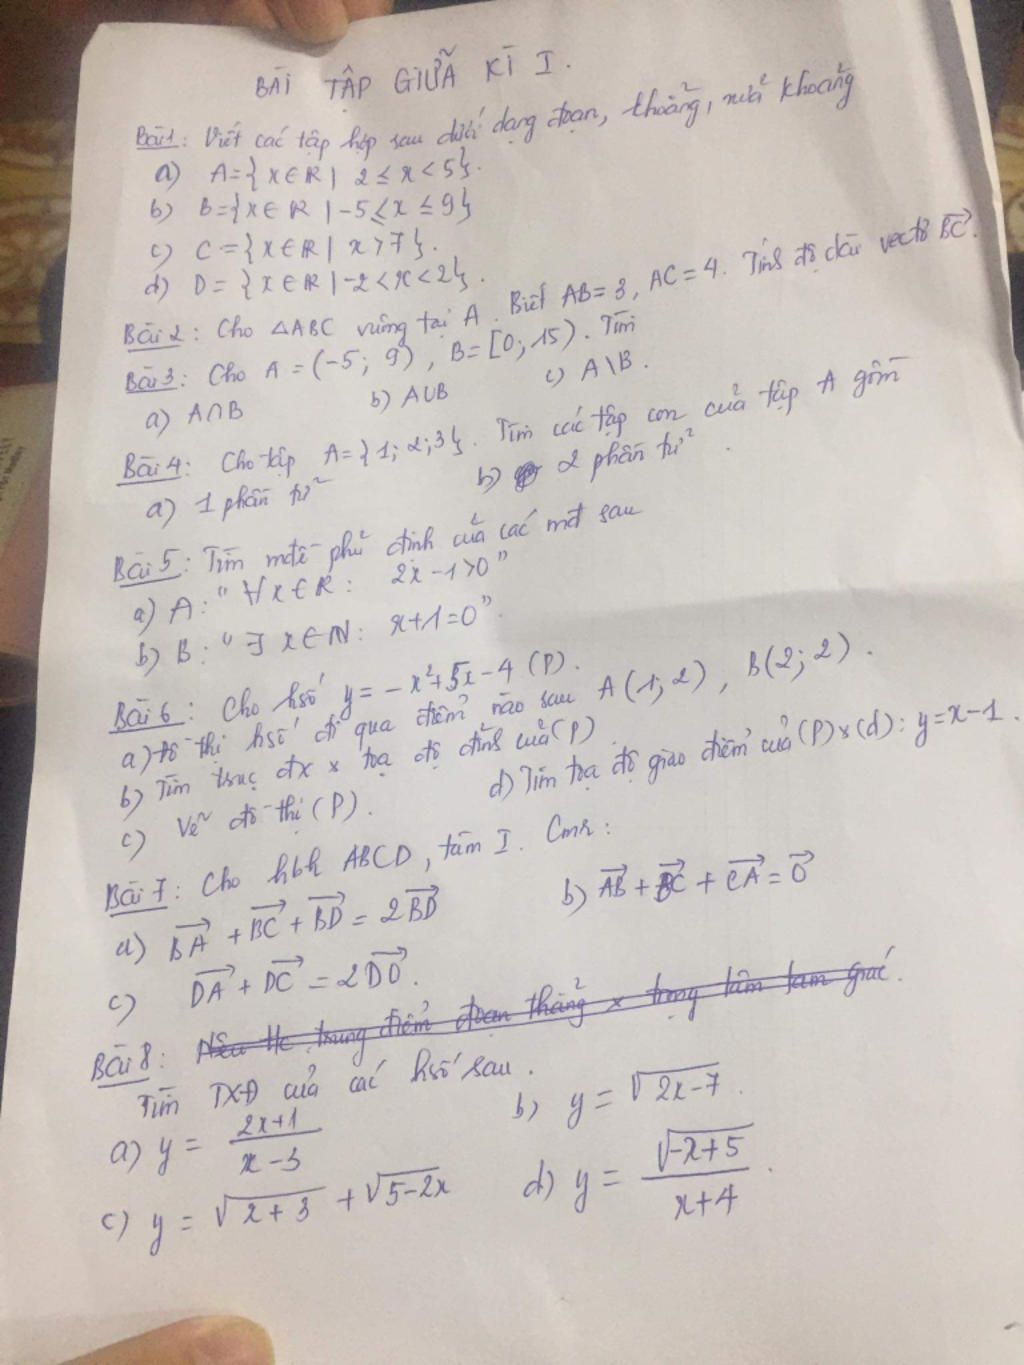 BÀI TẬP GIỮA KÌ I.
Bài 1: Viết các tập hợp sau dưới dạng đoạn, khoảng, nửa khoảng
a) A={x∈R| 2≤x<5}.
b) B={x∈R|-5≤x≤9}
c) C={x∈R| x>7}.
d) D={x∈R|-2<x<2}.
Bài 2: Cho △ABC vuông tại A. Biết AB=3, AC=4. Tính độ dài vectơ \overrightarrow{BC}.
Bài 3: Cho A=(-5; 9), B=[0; 15). Tìm
a) A∩B b) A∪B c) A\B.
Bài 4: Cho tập A={1; 2; 3}. Tìm các tập con của tập A gồm
a) 1 phần tử b) 2 phần tử.
Bài 5: Tìm mđề phủ định của các mđ sau
a) A: "∀x∈R: 2x-1>0"
b) B: "∃x∈N: x+1=0".
Bài 6: Cho hsố y=-x²+5x-4 (P).
a) Đồ thị hsố đi qua điểm nào sau A(1; 2), B(2; 2).
b) Tìm trục đx & tọa độ đỉnh của (P).
c) Vẽ đồ thị (P). d) Tìm tọa độ giao điểm của (P) & (d): y=x-1.
Bài 7: Cho hbh ABCD, tâm I. Cmr:
a) \overrightarrow{BA}+\overrightarrow{BC}+\overrightarrow{BD}=2\overrightarrow{BD} b) \overrightarrow{AB}+\overrightarrow{BC}+\overrightarrow{CA}=\overrightarrow{0}
c) \overrightarrow{DA}+\overrightarrow{DC}=2\overrightarrow{DO}.
Bài 8: Nêu tc trung điểm đoạn thẳng & trọng tâm tam giác.
Tìm TXĐ của các hsố sau.
a) y=\frac{2x+1}{x-3} b) y=√(2x-7).
c) y=√(x+3)+√(5-2x) d) y=\frac{√(-x+5)}{x+4}.